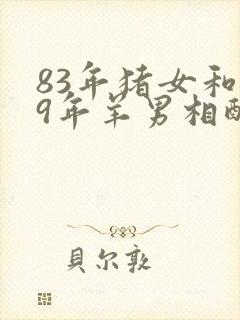 83年猪女和
9年羊男相配
貝尔敦